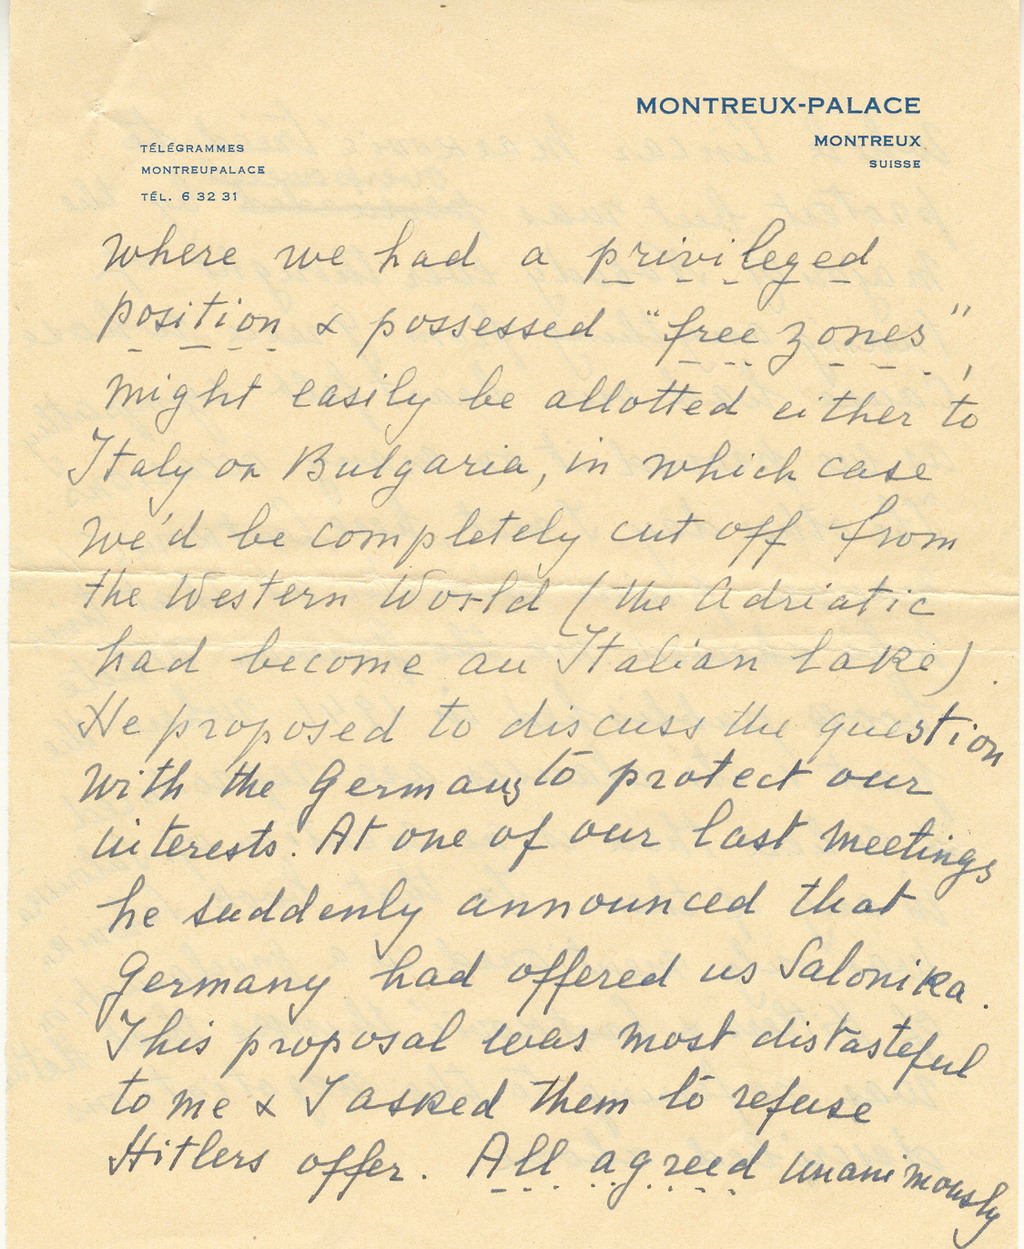 MONTREUX-PALACE
MONTREUX
SUISSE
TÉLÉGRAMMES
MONTREUPALACE
TÉL. 6 32 31
where we had a privileged
position & possessed "free zones",
might easily be allotted either to
Italy or Bulgaria, in which case
we'd be completely cut off from
the Western World (the Adriatic
had become an Italian lake).
He proposed to discuss the question
with the Germans to protect our
interests. At one of our last meetings
he suddenly announced that
Germany had offered us Salonika.
This proposal was most distasteful
to me & I asked them to refuse
Hitlers offer. All agreed unanimously